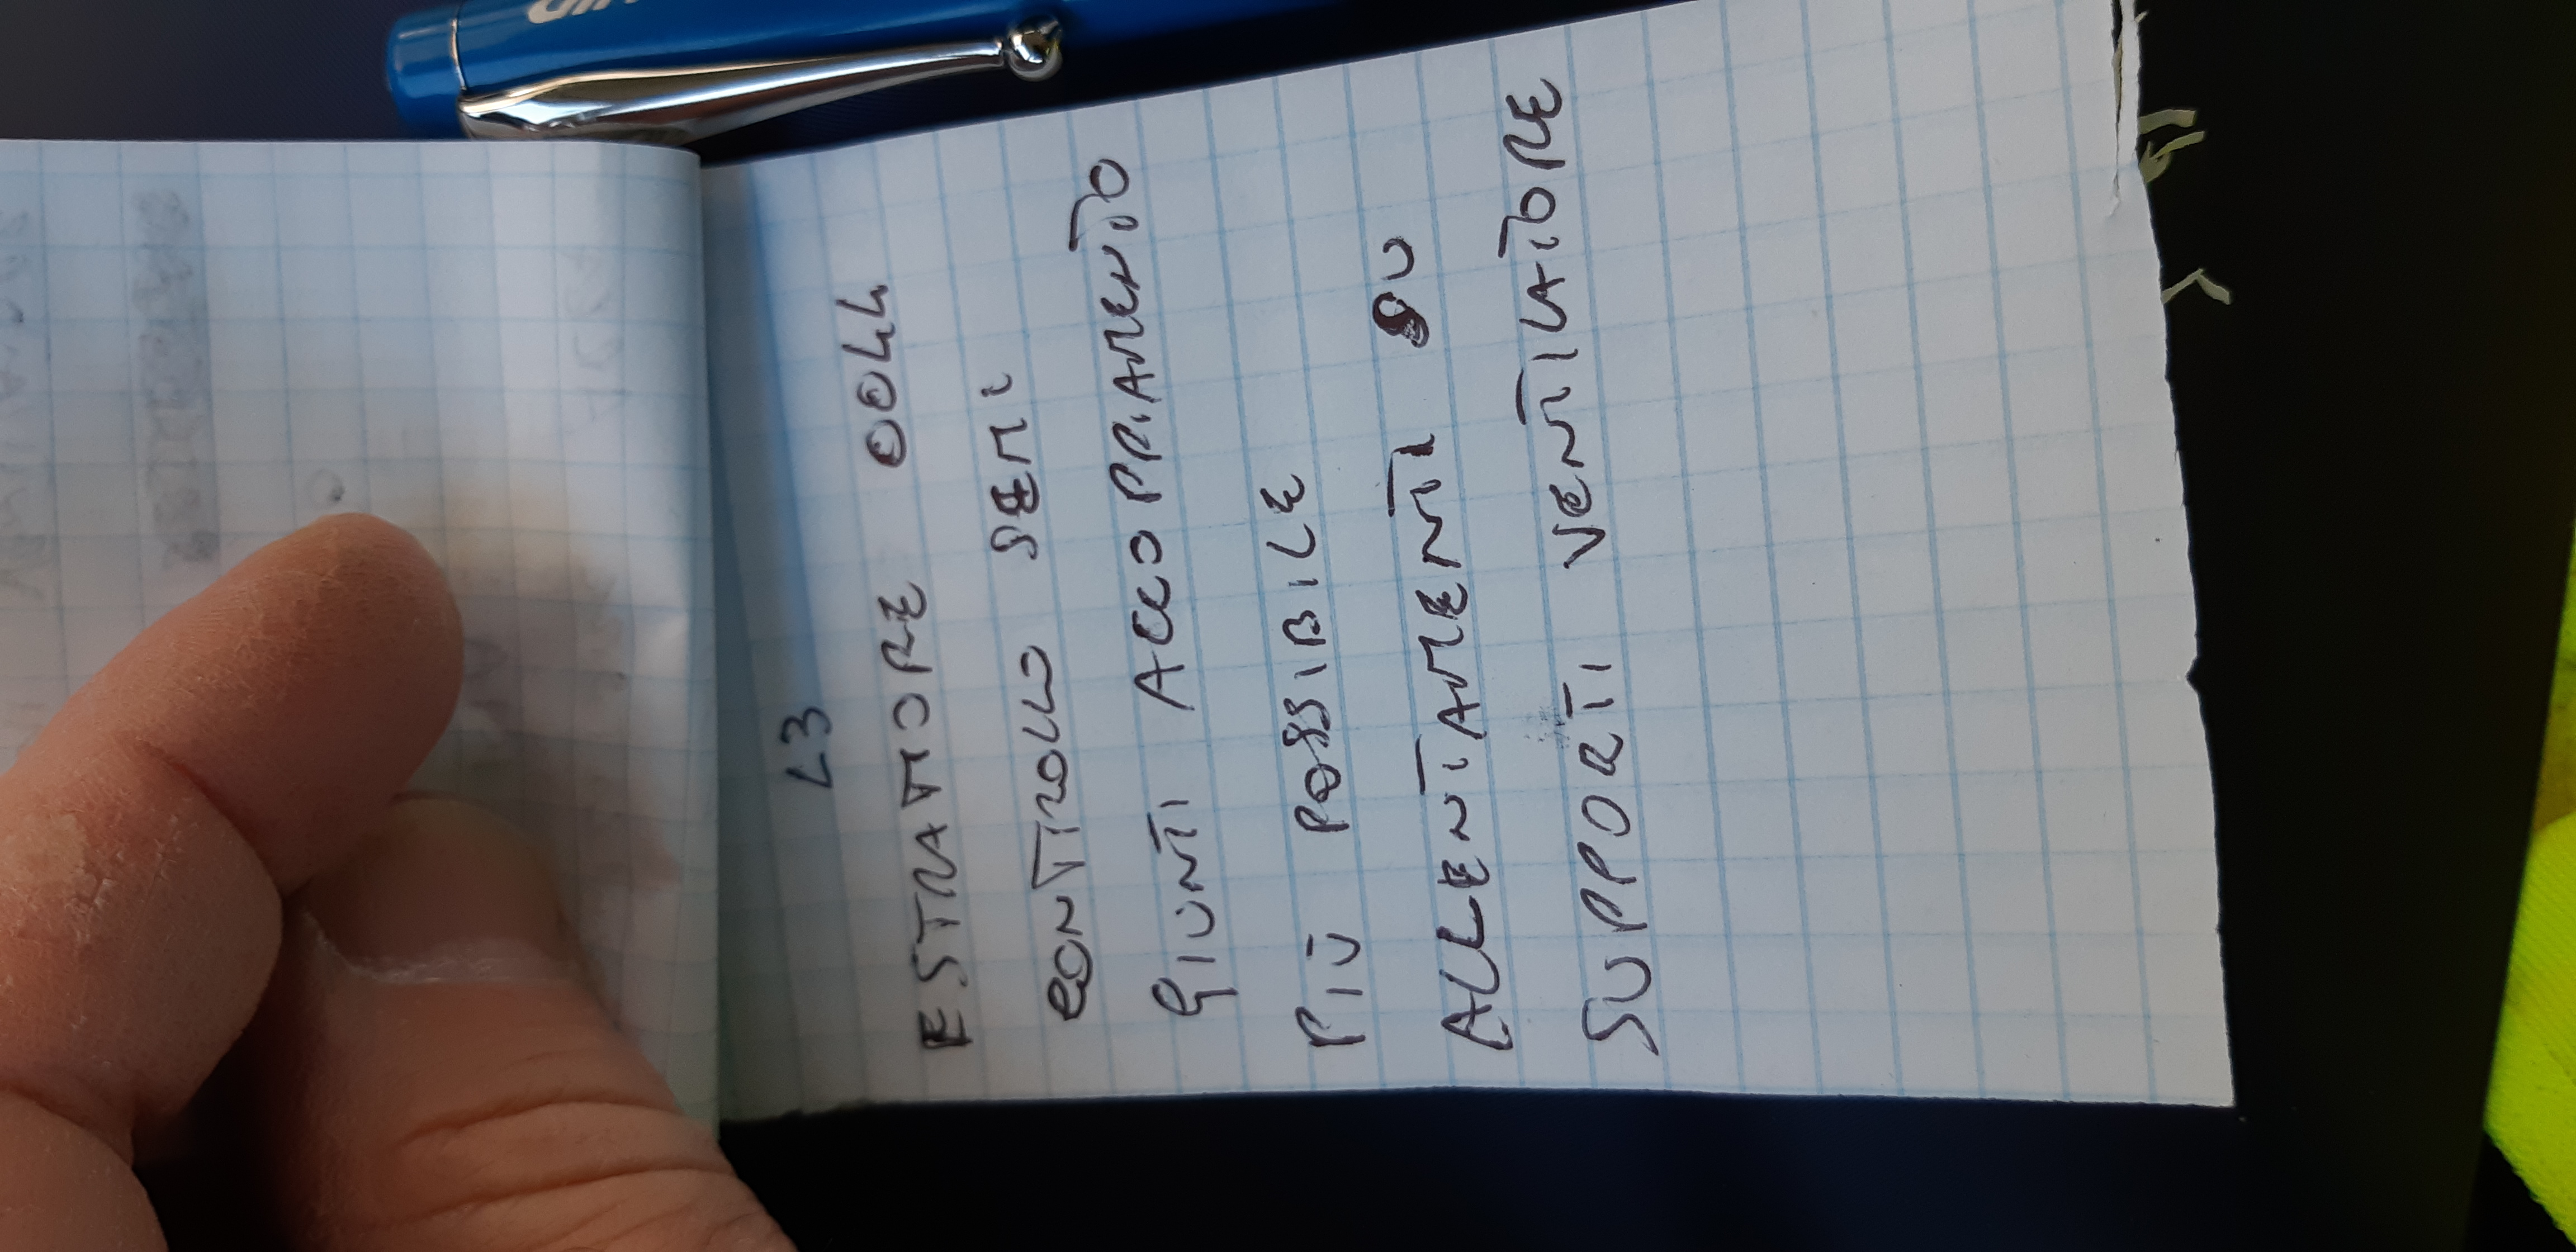 L3
ESTRATTORE 0044
CONTROLLO SEMI
GIUNTI ACCOPPIAMENTO
PIÙ POSSIBILE
ALLENTAMENTI SU
SUPPORTI VENTILATORE